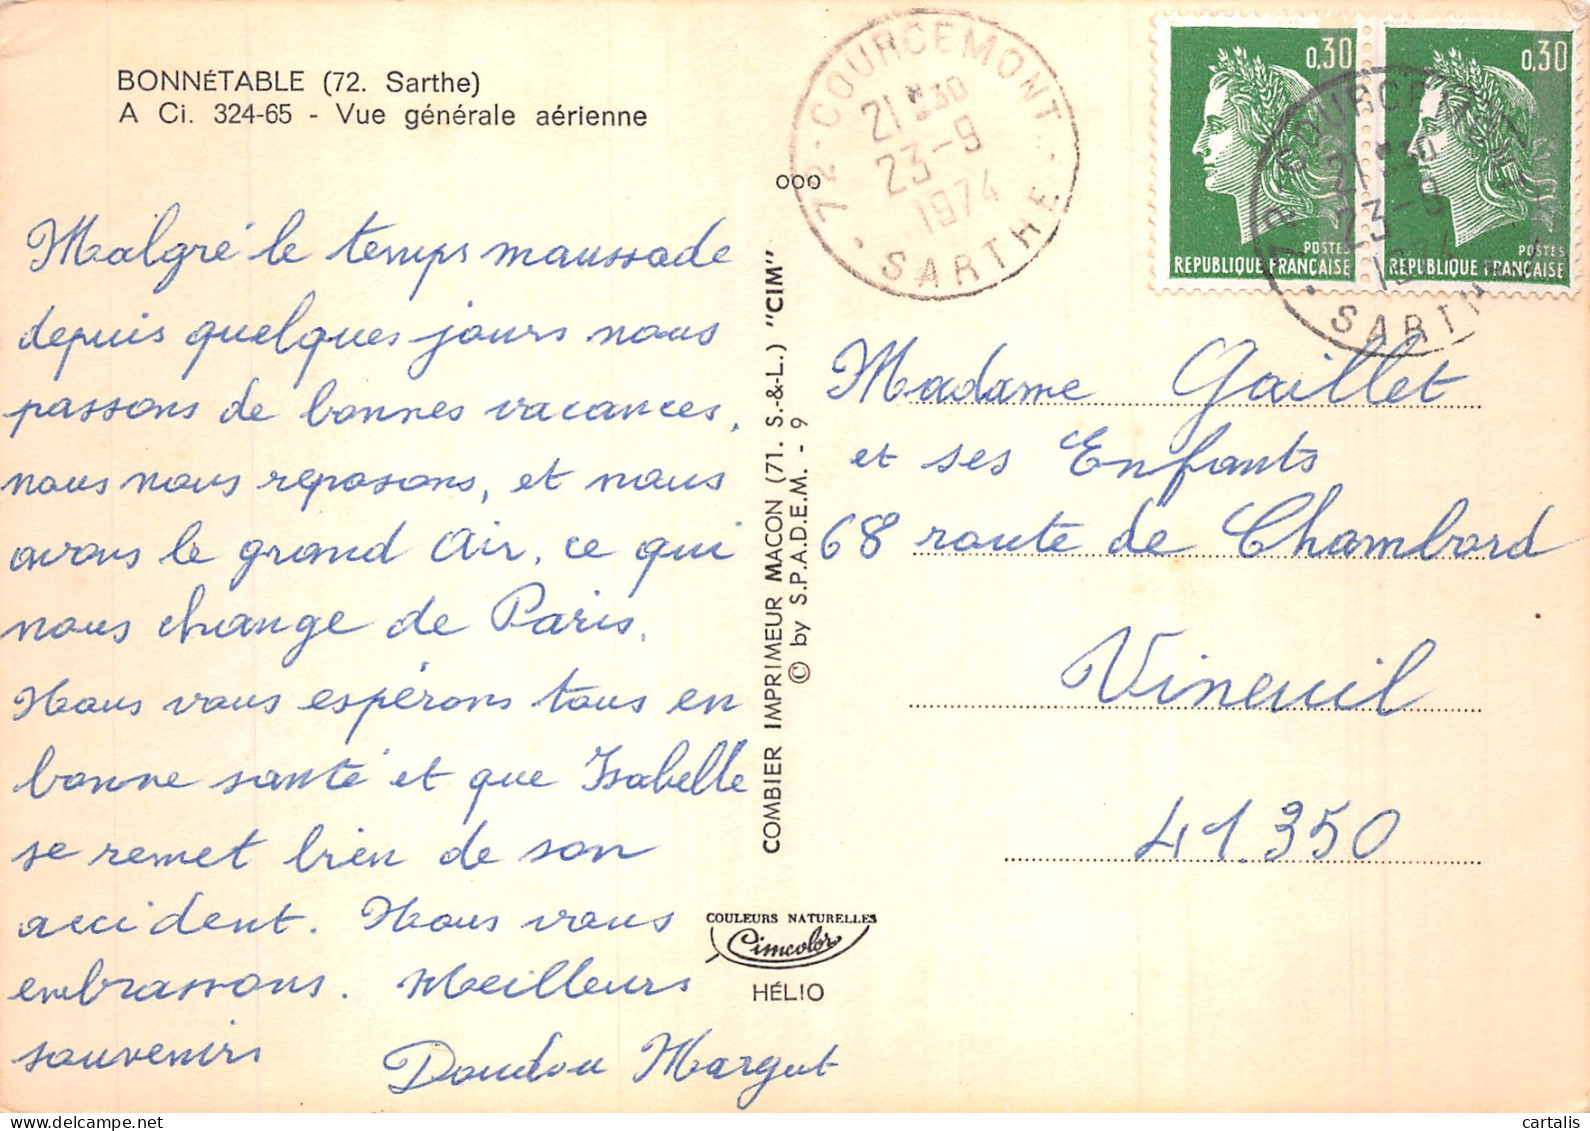 BONNÉTABLE (72. Sarthe)
A Ci. 324-65 - Vue générale aérienne
Malgré le temps maussade
depuis quelques jours nous
passons de bonnes vacances,
nous nous reposons, et nous
avons le grand Air, ce qui
nous change de Paris.
Nous vous espérons tous en
bonne santé et que Isabelle
se remet bien de son
accident. Nous vous
embrassons. Meilleurs
souvenirs
Doudou Margut
COMBIER IMPRIMEUR MACON (71. S.-&-L.) "CIM"
© by S.P.A.D.E.M. - 9
COULEURS NATURELLES
Cimcolor
HÉLIO
ooo
72 - COURCEMONT
21 H 30
23 - 9
1974
SARTHE
0,30
POSTES
REPUBLIQUE FRANÇAISE
0,30
POSTES
REPUBLIQUE FRANÇAISE
COURCEMONT
21 H 30
23 - 9
1974
SARTHE
Madame Gaillet
et ses Enfants
68 route de Chambord
Vineuil
41.350
www.delcampe.net
cartalis